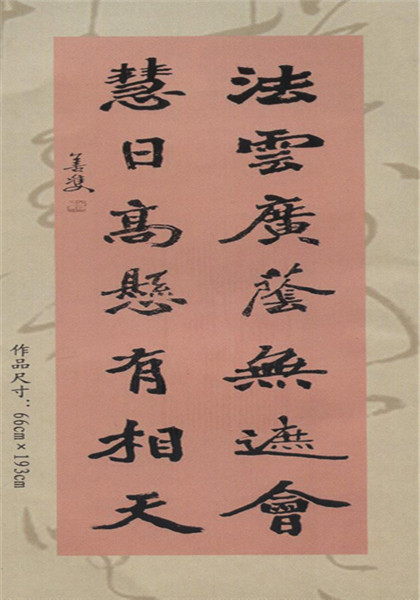 法雲廣蔭無遮會
慧日高懸有相天
善雙
作品尺寸：66cm×193cm